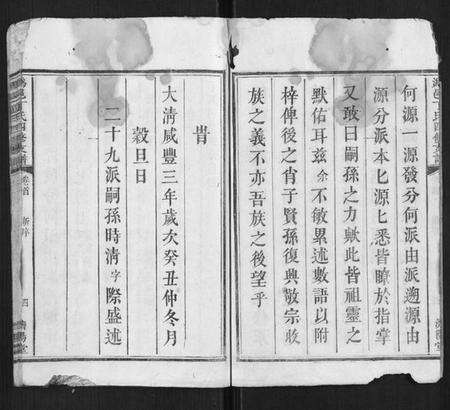 何源一源發分何派由派遡源由
源分派本匕源匕悉皆瞭於指掌
又敢曰嗣孫之力歟此皆祖靈之
默佑耳兹余不敏累述數語以附
梓俾後之肖子賢孫復興敬宗收
族之義不亦吾族之後望乎
旹
大清咸豐三年歲次癸丑仲冬月
穀旦日
二十九派嗣孫時清字際盛述
卷首
四